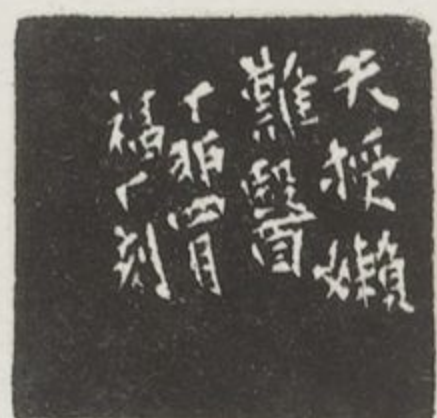 天授嬾
難醫
丁卯四月
福厂刻